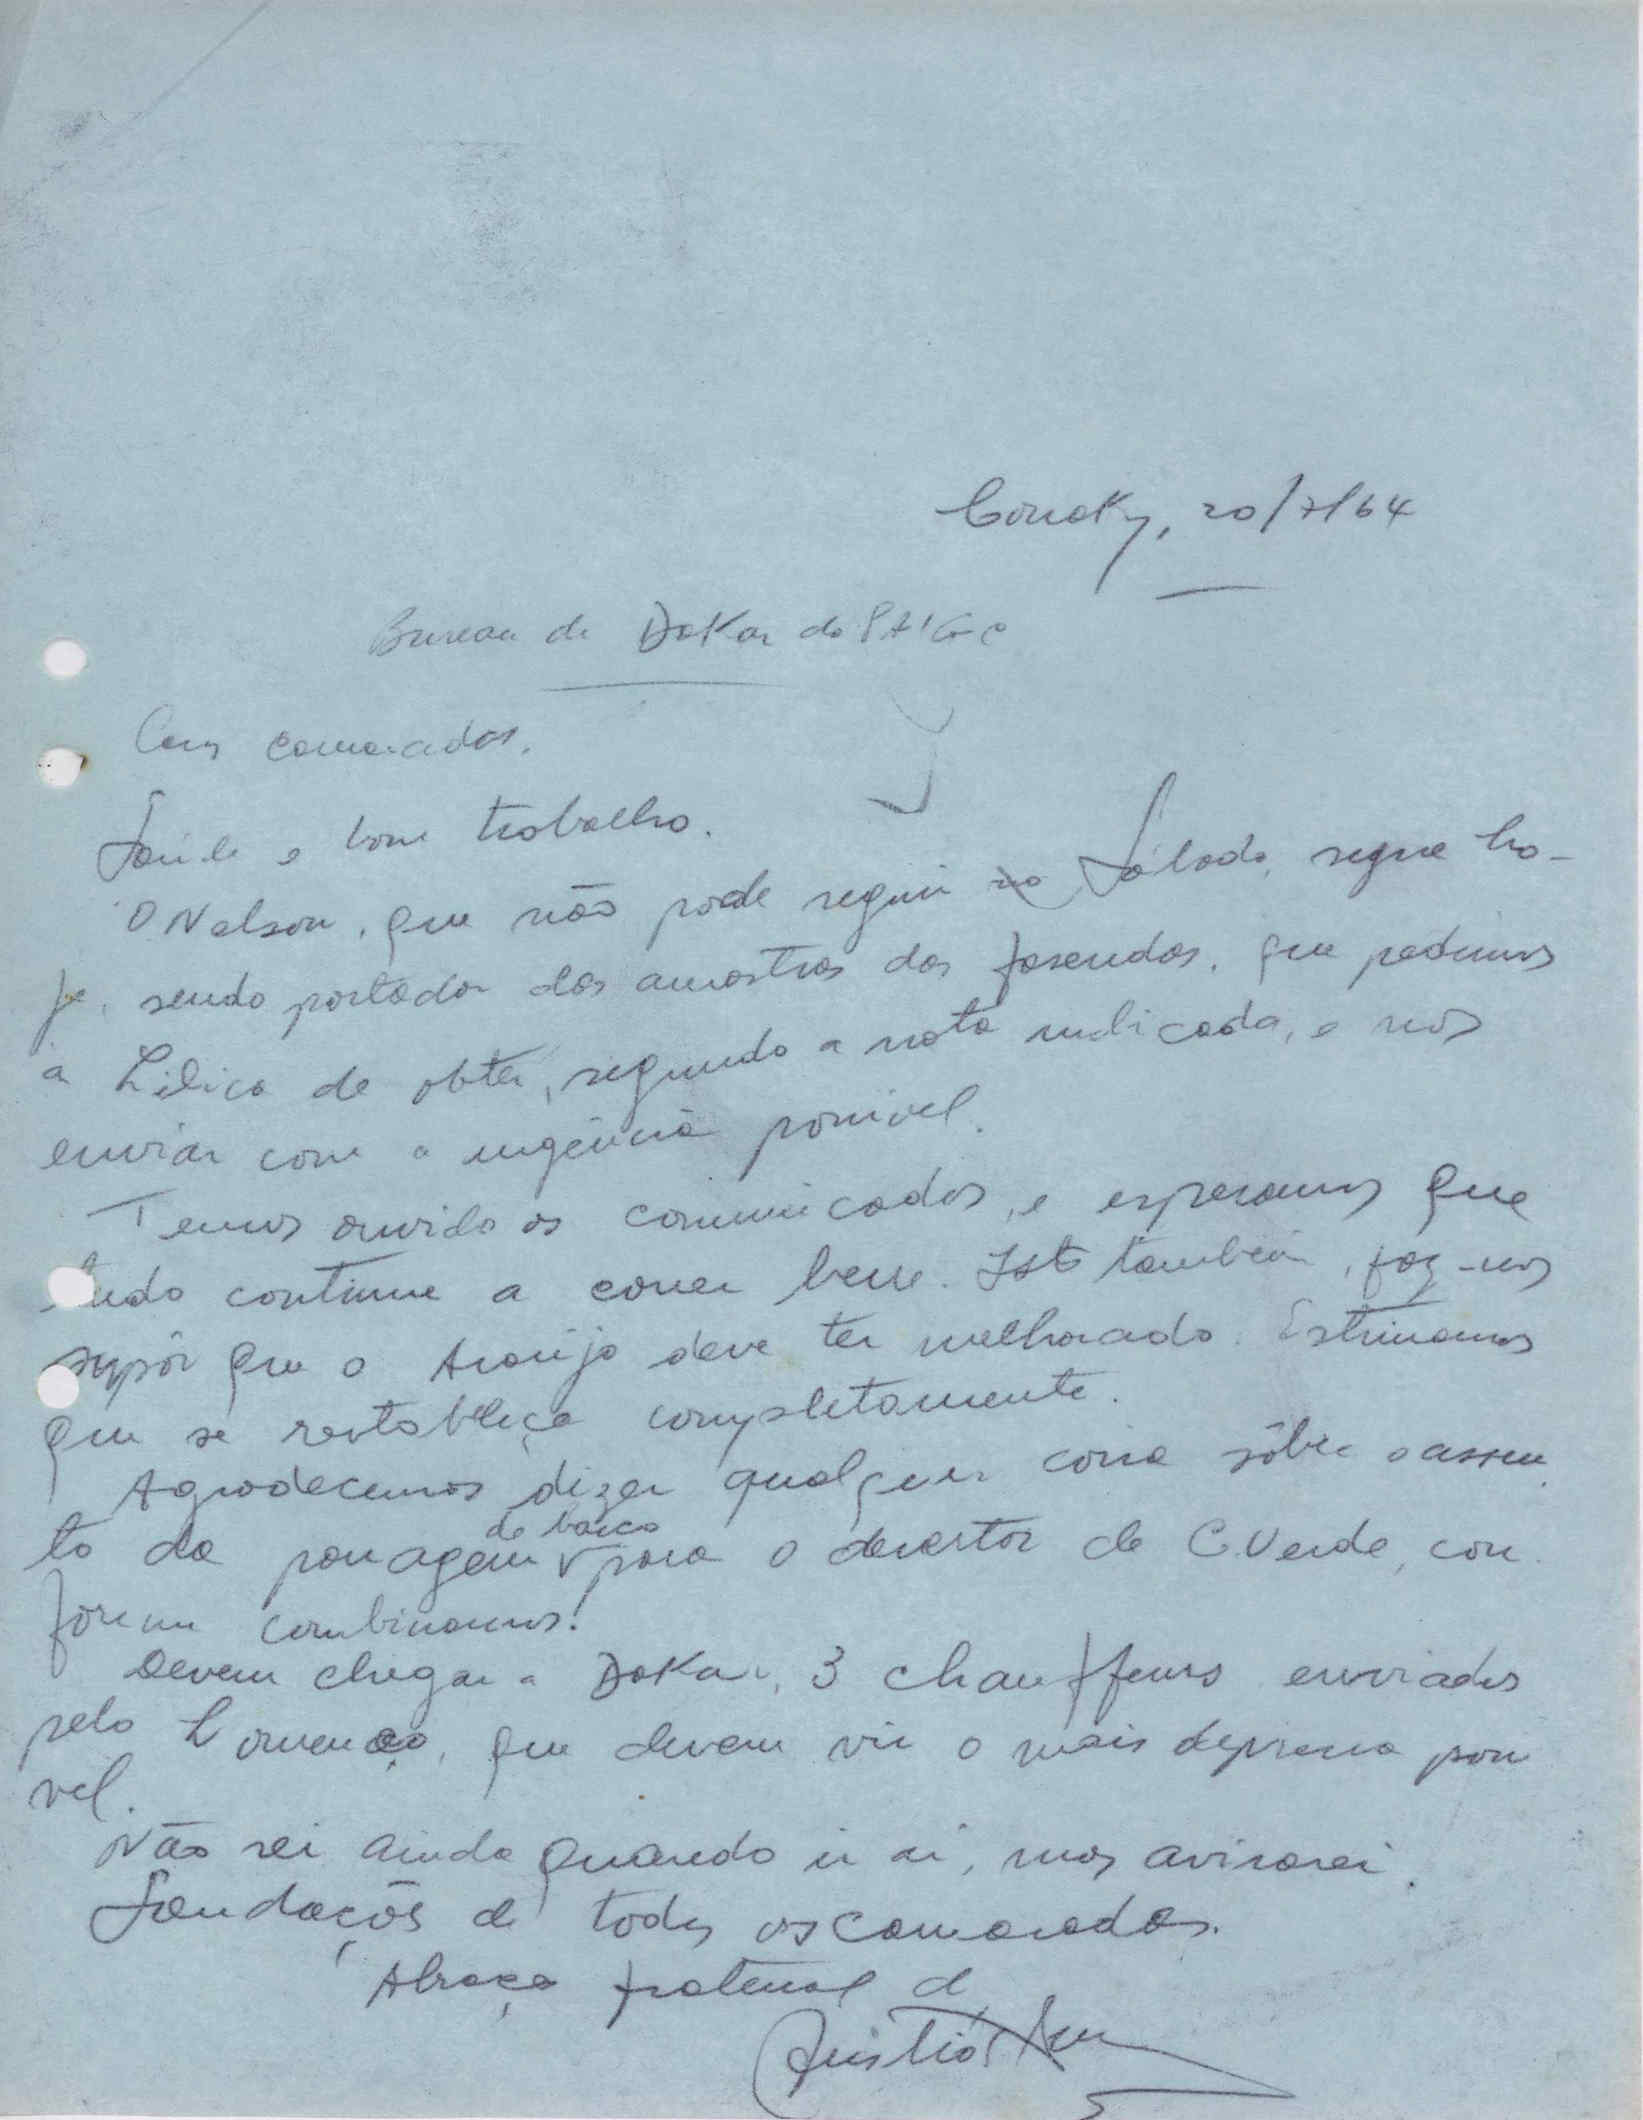 Conakry, 20/7/64
Bureau de Dakar do PAIGC
Caros camaradas,
Saúde e bom trabalho.
O Nelson, que não pode seguir no Sábado, segue ho-
je, sendo portador das amostras das fasendas, que pedimos
à Lilica de obter, segundo a nota indicada, e nos
enviar com a urgência possivel.
Temos ouvido os comunicados, e esperamos que
tudo continue a correr bem. Isto também, faz-nos
supôr que o Araújo deve ter melhorado. Estimamos
que se restabeleça completamente.
Agradecemos dizer qualquer coisa sôbre o assun
to da passagem de barco para o desertor de C. Verde, con-
forme combinamos!
Devem chegar a Dakar, 3 chauffeurs enviados
pelo Lourenço, que devem vir o mais depressa possi
vel.
Não sei ainda quando ir aí, mas avisarei.
Saudações de todos os camaradas.
Abraço fraternal de